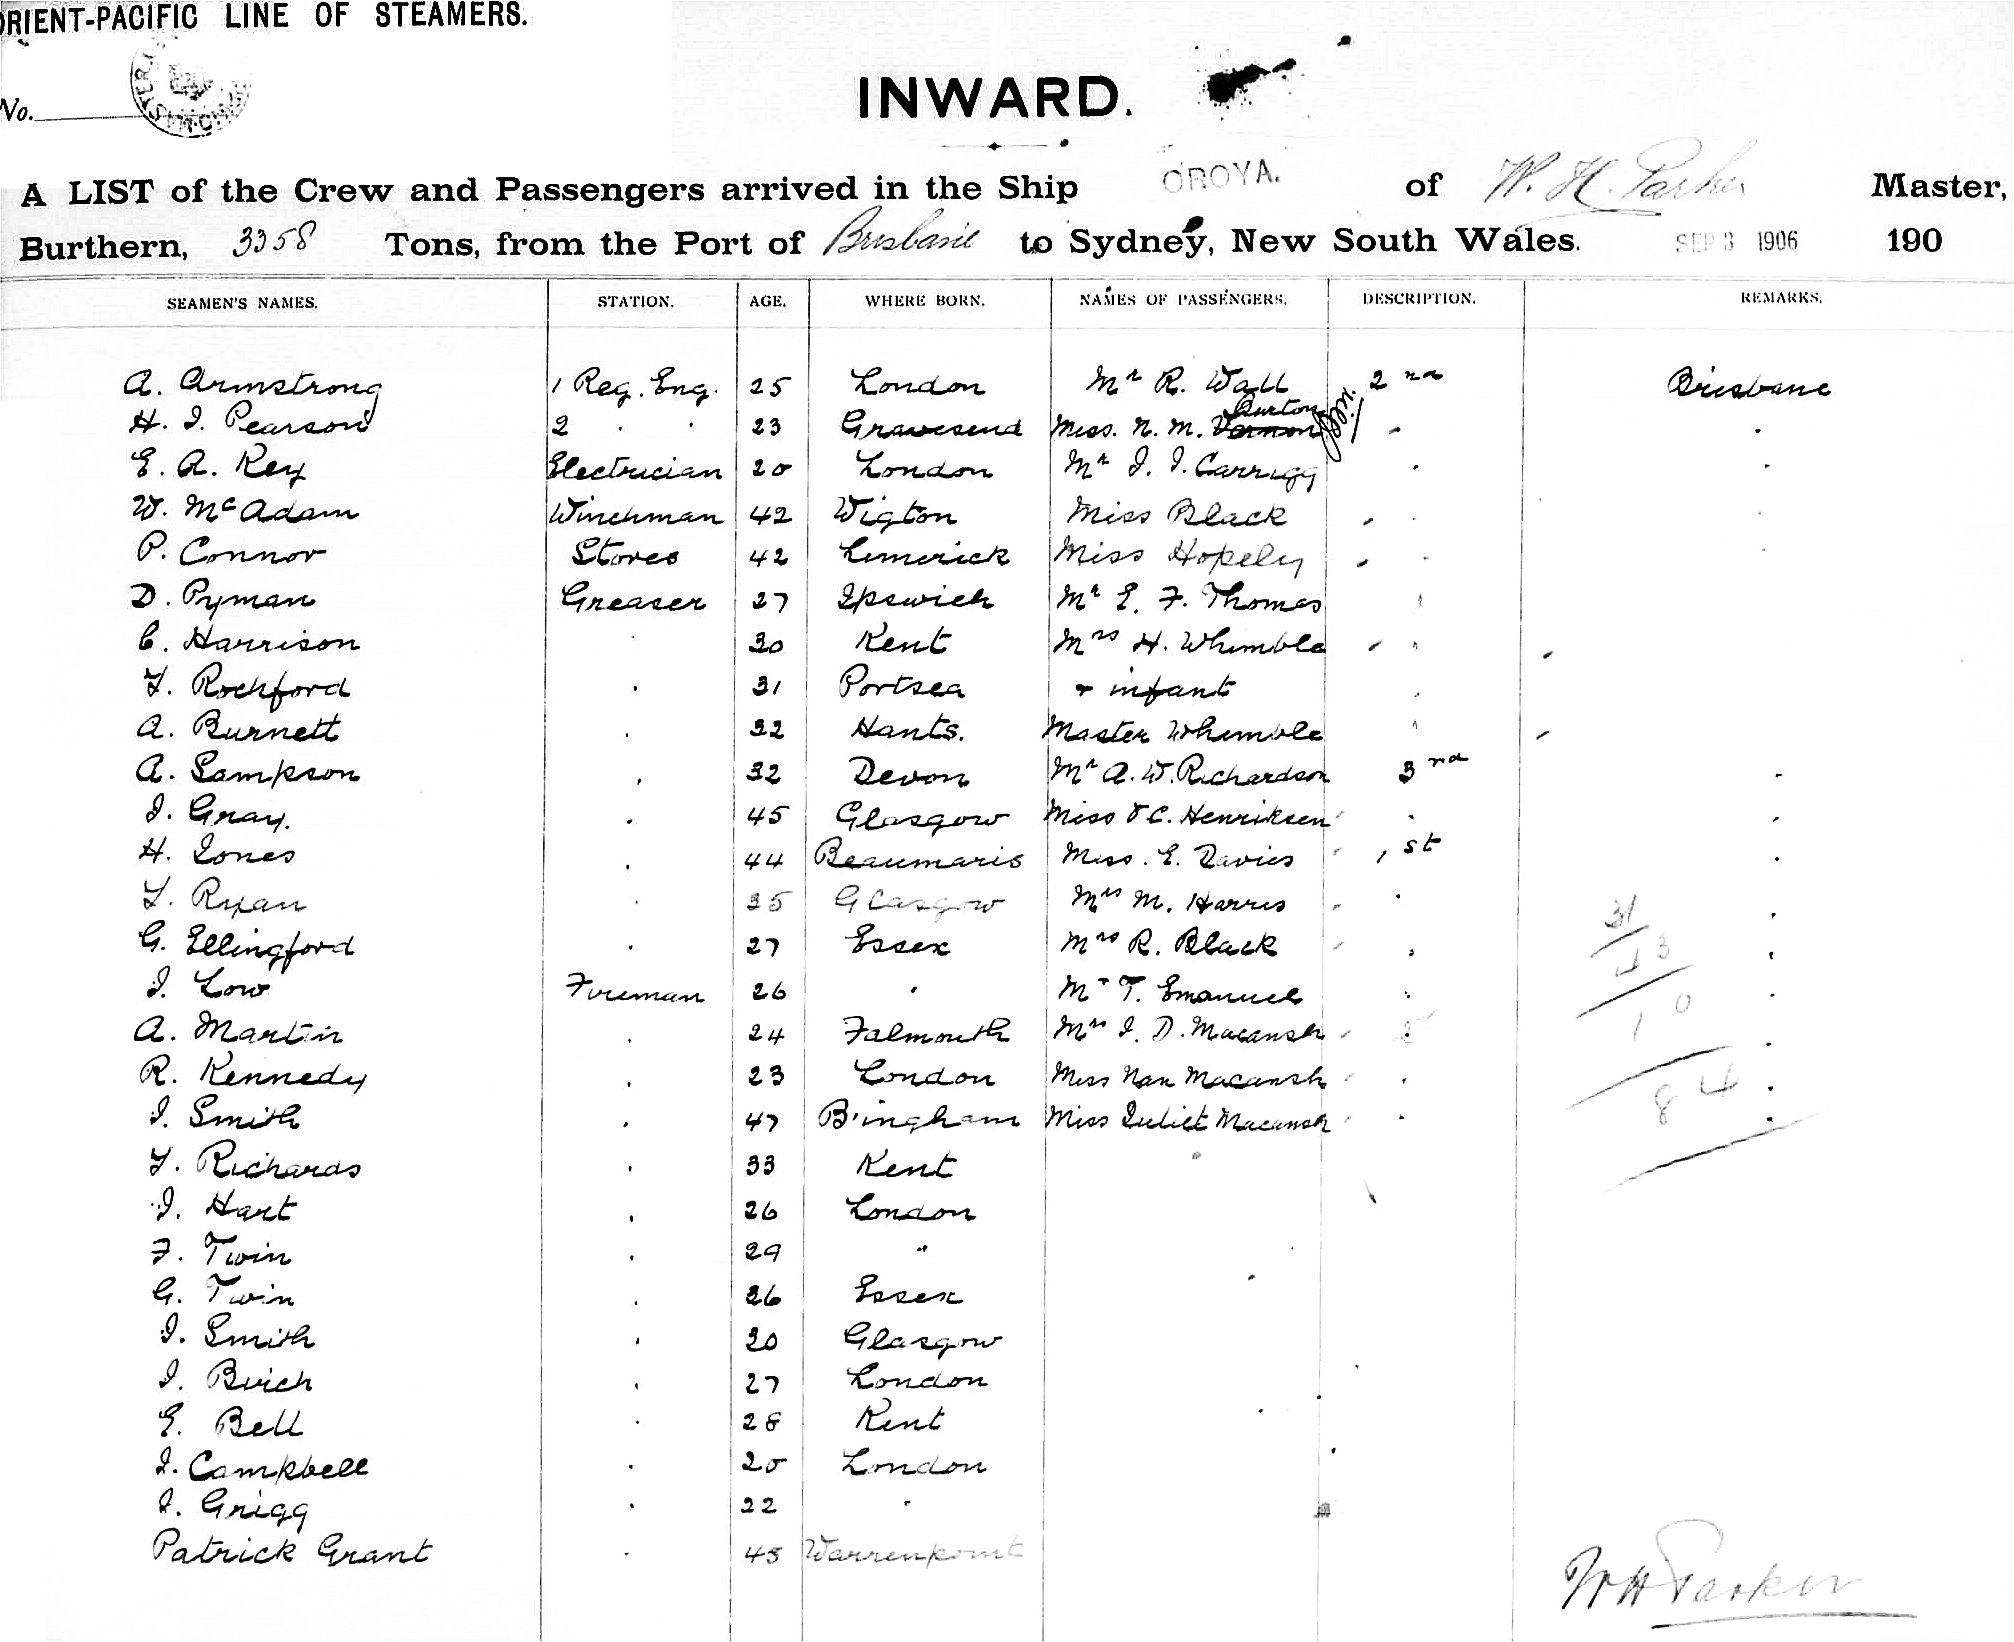 ORIENT-PACIFIC LINE OF STEAMERS.
No.
INWARD.
A LIST of the Crew and Passengers arrived in the Ship OROYA. of W. H. Parker Master,
Burthern, 3358 Tons, from the Port of Brisbane to Sydney, New South Wales. SEP 3 1906 190
SEAMEN'S NAMES. STATION. AGE. WHERE BORN. NAMES OF PASSENGERS. DESCRIPTION. REMARKS.
A. Armstrong 1 Reg. Eng. 25 London Mr R. Wall 2nd Brisbane
Burton
H. J. Pearson 2 " " 23 Gravesend Miss. N. M. Vernon "
E. A. Key Electrician 20 London Mr J. J. Carrigg "
W. McAdam Winchman 42 Wigton Miss Black "
P. Connor Stores 42 Limerick Miss Hopely "
D. Pyman Greaser 27 Ipswich Mr E. F. Thomas "
C. Harrison " 30 Kent Mrs H. Whimble "
T. Rochford " 31 Portsea + infant "
A. Burnett " 32 Hants. Master Whimble "
A. Sampson " 32 Devon Mr A. W. Richardson 3rd
J. Gray. " 45 Glasgow Miss & C. Henriksen "
H. Jones " 44 Beaumaris Miss. E. Davies 1st
T. Ryan " 35 Glasgow Mrs M. Harris "
G. Ellingford " 27 Essex Mrs R. Black "
J. Low Fireman 26 " Mr T. Emanuel "
A. Martin " 24 Falmouth Mrs J. D. Macansh "
R. Kennedy " 23 London Miss Nan Macansh "
J. Smith " 47 B'ingham Miss Juliet Macansh "
T. Richards " 33 Kent
J. Hart " 26 London
F. Twin " 29 "
G. Twin " 26 Essex
J. Smith " 30 Glasgow
J. Birch " 27 London
E. Bell " 28 Kent
J. Campbell " 20 London
J. Grigg " 22 "
Patrick Grant " 45 Warrenpoint
31
43
10
84
W H Parker